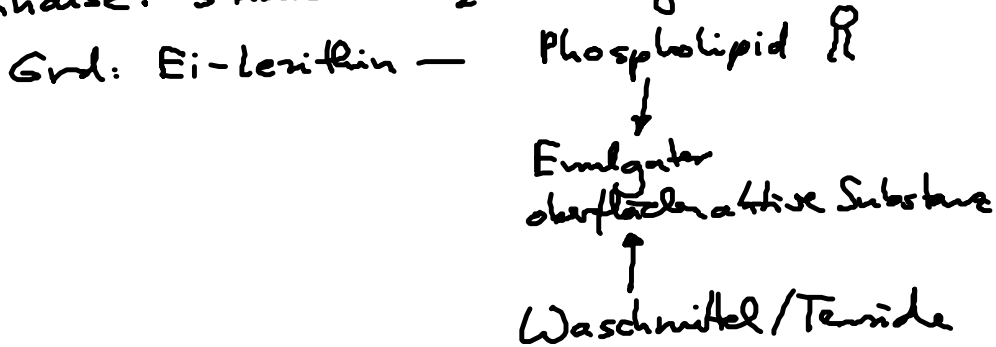 Grd: Ei-Lezithin — Phospholipid
Emulgator
oberflächenaktive Substanz
Waschmittel/Tenside